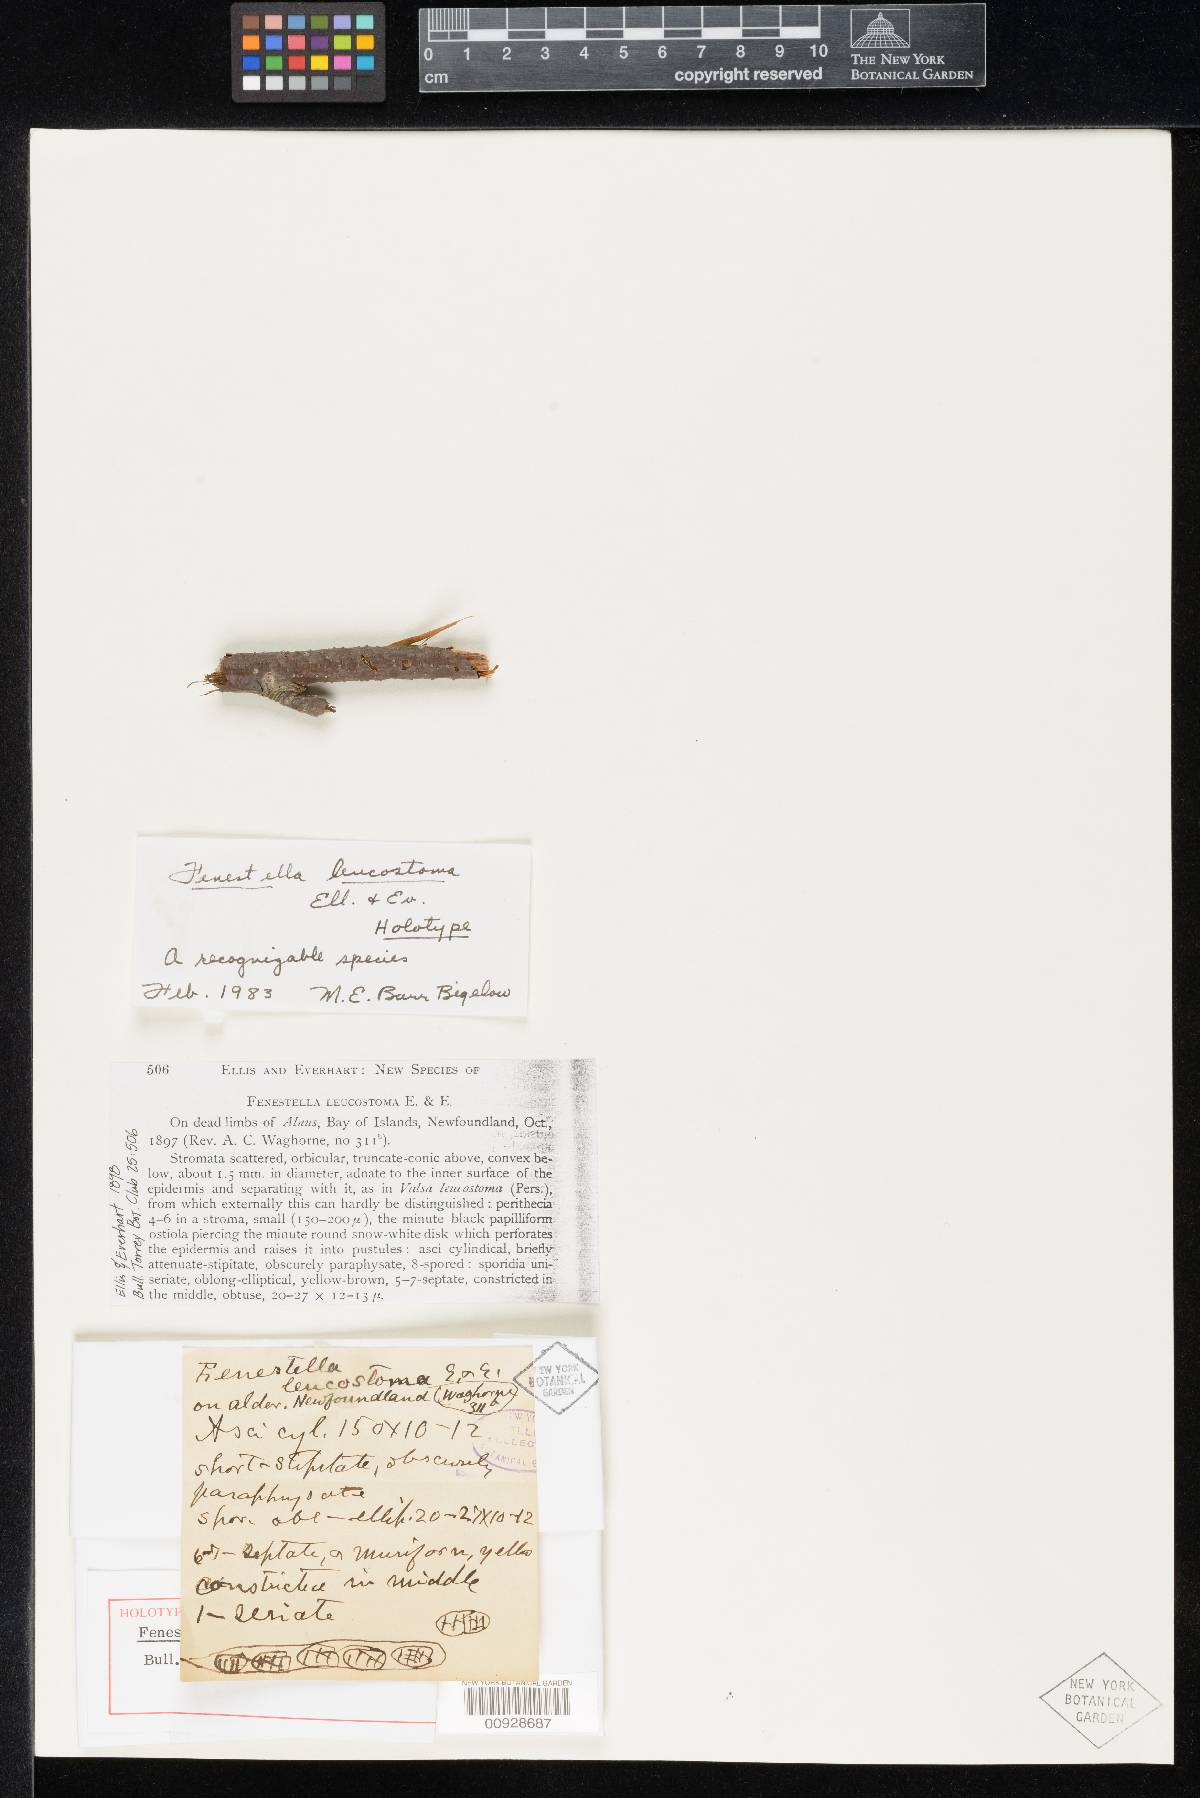 0 1 2 3 4 5 6 7 8 9 10
cm
copyright reserved
THE NEW YORK
BOTANICAL GARDEN
Fenestella leucostoma
Ell. & Ev.
Holotype
A recognizable species
Feb. 1983 M. E. Barr Bigelow
506 ELLIS AND EVERHART: NEW SPECIES OF
FENESTELLA LEUCOSTOMA E. & E.
On dead limbs of Alnus, Bay of Islands, Newfoundland, Oct.,
1897 (Rev. A. C. Waghorne, no 311b).
Stromata scattered, orbicular, truncate-conic above, convex be-
low, about 1.5 mm. in diameter, adnate to the inner surface of the
epidermis and separating with it, as in Valsa leucostoma (Pers.),
from which externally this can hardly be distinguished: perithecia
4–6 in a stroma, small (150–200 µ), the minute black papilliform
ostiola piercing the minute round snow-white disk which perforates
the epidermis and raises it into pustules: asci cylindical, briefly
attenuate-stipitate, obscurely paraphysate, 8-spored: sporidia uni-
seriate, oblong-elliptical, yellow-brown, 5–7-septate, constricted in
the middle, obtuse, 20–27 × 12–13 µ.
Ellis & Everhart 1898
Bull. Torrey Bot. Club 25:506
Fenestella
leucostoma E. & E.
on alder. Newfoundland (Waghorne
311b)
Asci cyl. 150×10–12
short-stipitate, obscurely
paraphysate
spor. obl–ellip. 20–27×10–12
septate, & muriform, yello
constricted in middle
1–seriate
NEW YORK
BOTANICAL
GARDEN
HOLOTYP
Fenes
Bull.
NEW YORK BOTANICAL GARDEN
00928687
NEW YORK
BOTANICAL
GARDEN